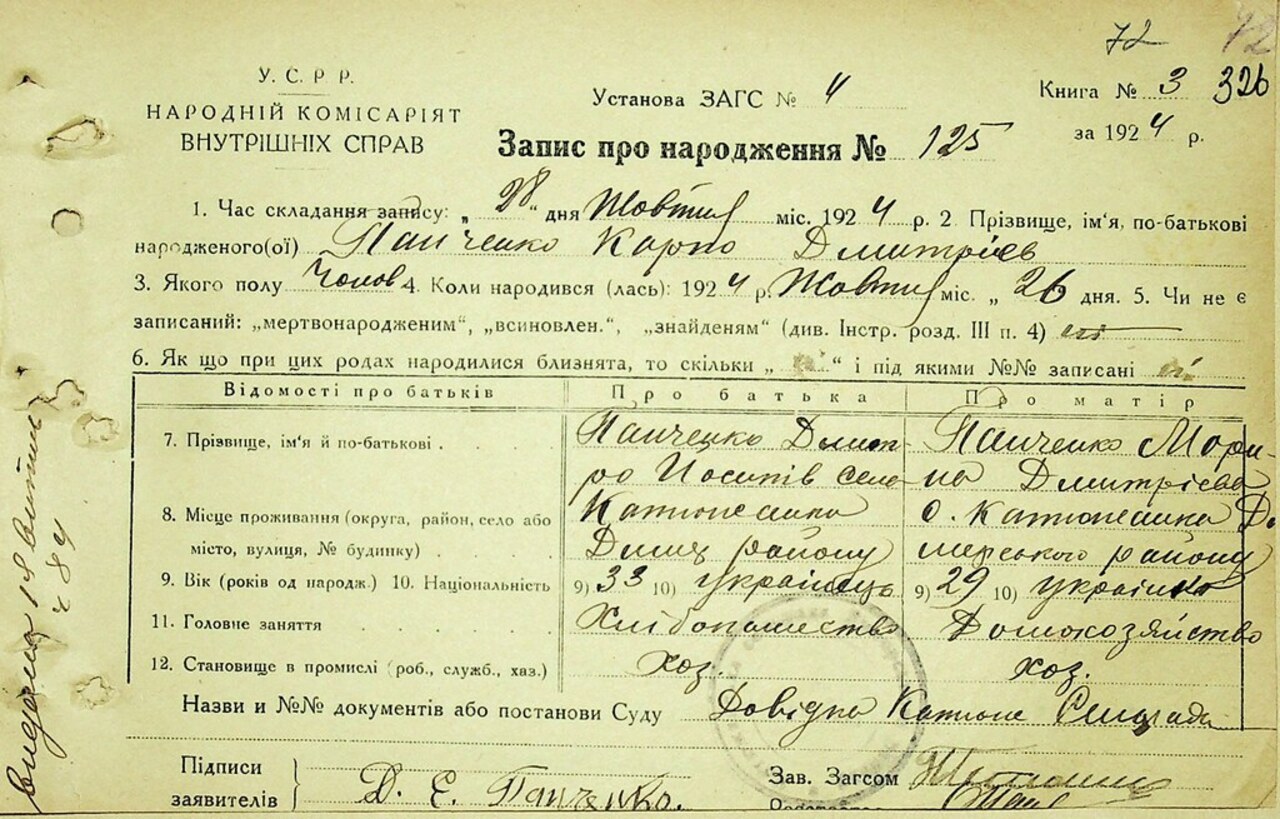 72 72
У. С. Р Р.
НАРОДНІЙ КОМІСАРІЯТ
ВНУТРІШНІХ СПРАВ
Установа ЗАГС № 4
Книга № 3 326
за 1924 р.
Запис про народження № 125
1. Час складання запису: „28“ дня Жовтня міс. 1924 р. 2. Прізвище, ім‘я, по-батькові
народженого(ої) Панченко Карпо Дмитрієв
3. Якого полу Чолов 4. Коли народився (лась): 1924 р. Жовтня міс. „26 дня. 5. Чи не є
записаний: „мертвонародженим“, „всиновлен.“, „знайденям“ (див. Інстр. розд. III п. 4) ні
6. Як що при цих родах народилися близнята, то скільки „ні“ і під якими №№ записані ні
Відомості про батьків Про батька Про матір
7. Прізвище, ім‘я й по-батькові . Панченко Дмит- Панченко Мари-
ро Йосипів село- на Дмитрієва
8. Місце проживання (округа, район, село або Катюжанка с. Катюжанка Ди-
місто, вулиця, № будинку) . Димер району мерського району
9. Вік (років од народж.) 10. Національність 9) 33 10) українець 9) 29 10) українка
11. Головне заняття Хлібопашество Домохозяйство
12. Становище в промислі (роб., служб., хаз.) хоз. хоз.
Назви и №№ документів або постанови Суду Довідка Катюж Сільради
Підписи
заявителів
Д. Є. Панченко.
Зав. Загсом
видана 1 в витяг